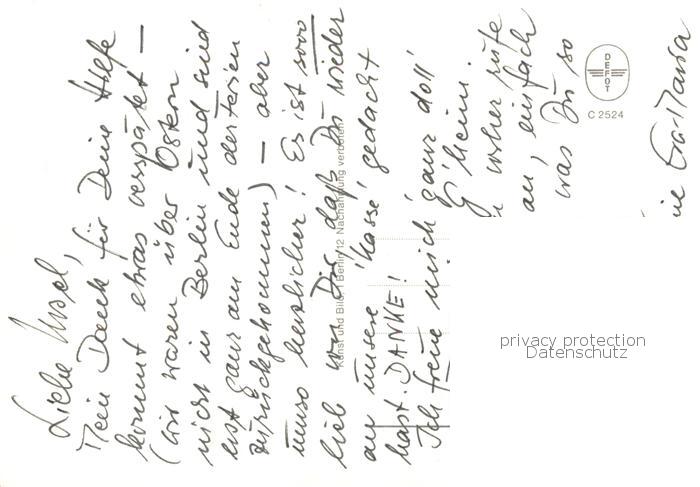 Liebe Ursel,
Mein Dank für Deine Hilfe
kommt etwas verspätet –
(wir waren über Ostern
nicht in Berlin und sind
erst ganz am Ende der Ferien
zurückgekommen) – aber
umso herzlicher! Es ist sooo
lieb von Dir, daß Du wieder
an unsere 'Kasse' gedacht
hast. DANKE!
Ich freue mich 'ganz doll'
G'heim.
vorher rufe
an, einfach
was Du so
Eva-Maria
Kunst und Bild, 1 Berlin 12 Nachahmung verboten
DEFOT
C 2524
privacy protection
Datenschutz